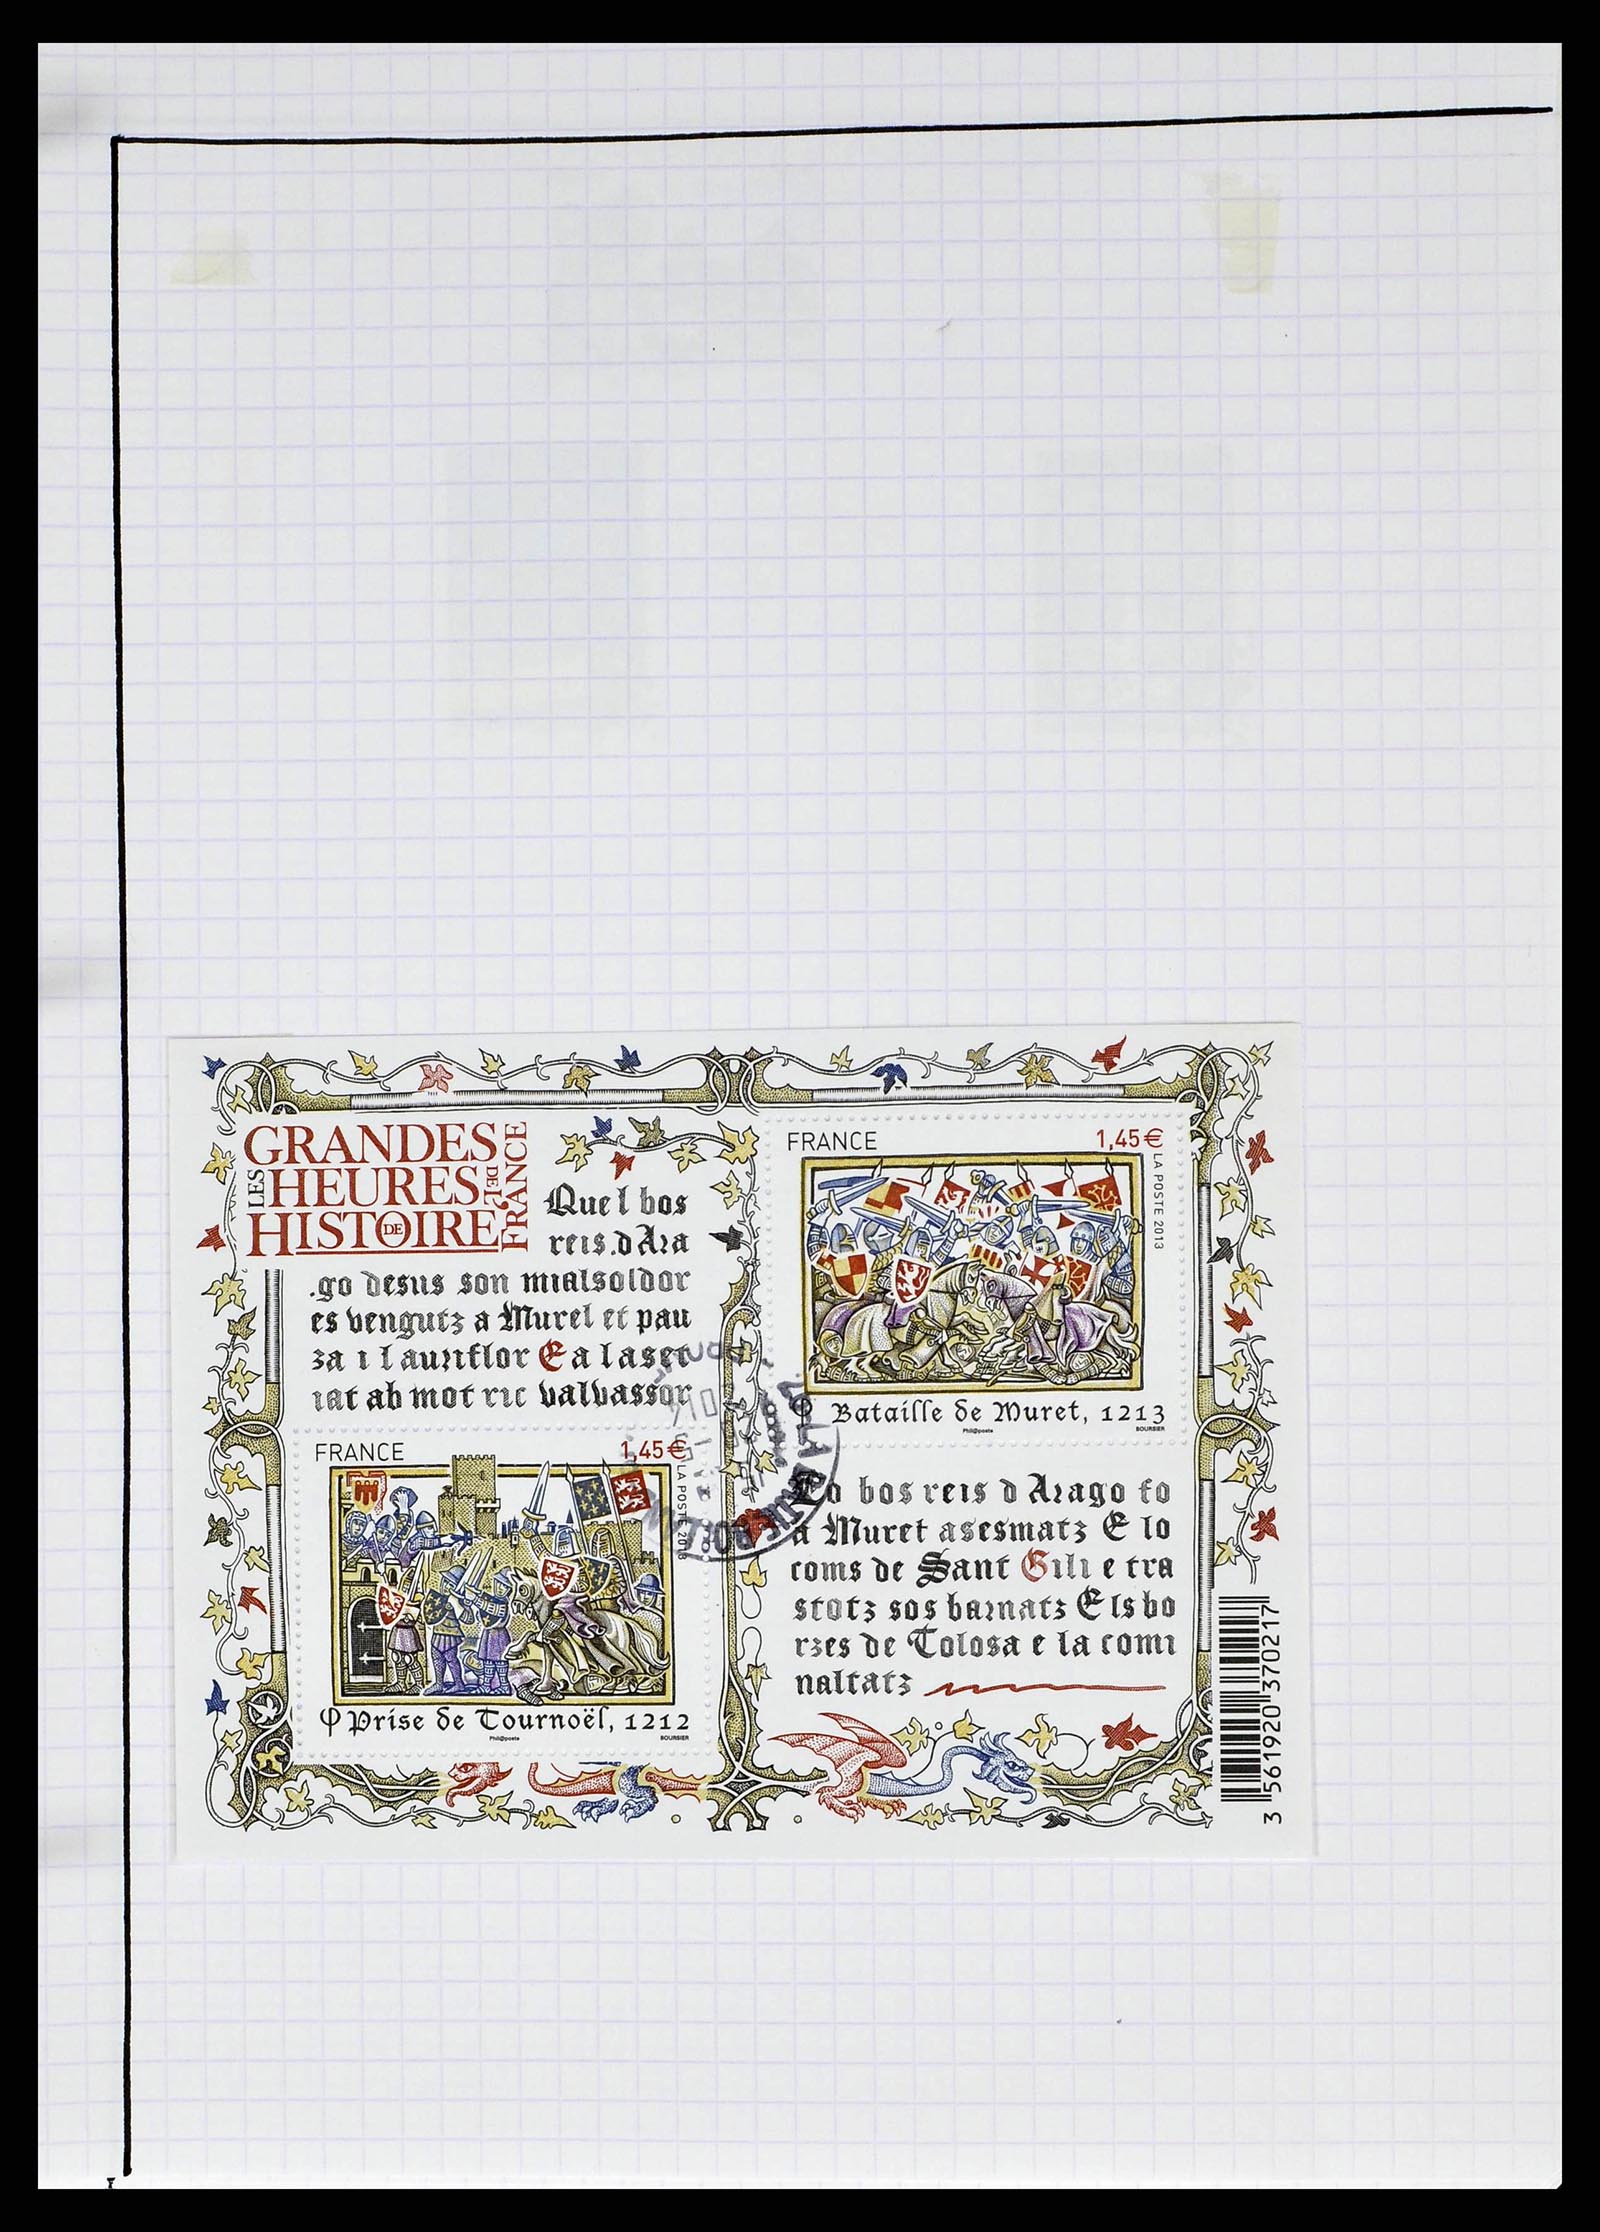 LES GRANDES HEURES DE L'HISTOIRE DE FRANCE
Que l bos
reis.d Ara
.go desus son mialsoldor
es vengutz a Murel et pau
za i l auriflor E a laser
iat ab mot ric valvassor
FRANCE 1,45€
LA POSTE 2013
Bataille de Muret, 1213
Phil@poste BOURSIER
FRANCE 1,45€
LA POSTE 2013
Prise de Tournoël, 1212
Phil@poste BOURSIER
Lo bos reis d Arago fo
a Muret asesmatz E lo
coms de Sant Gili e tra
stotz sos barnatz E ls bo
rzes de Tolosa e la comi
naltatz
3 561920 370217